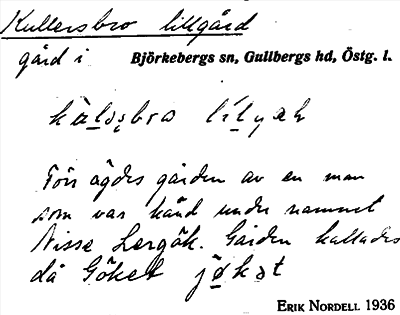 Kullersbro lillgård
gård i Björkebergs sn, Gullbergs hd, Östg. l.
Förr ägdes gården av en man
som var känd under namnet
Nisse Lergök. Gården kallades
då Göket jøkət
ERIK NORDELL 1936